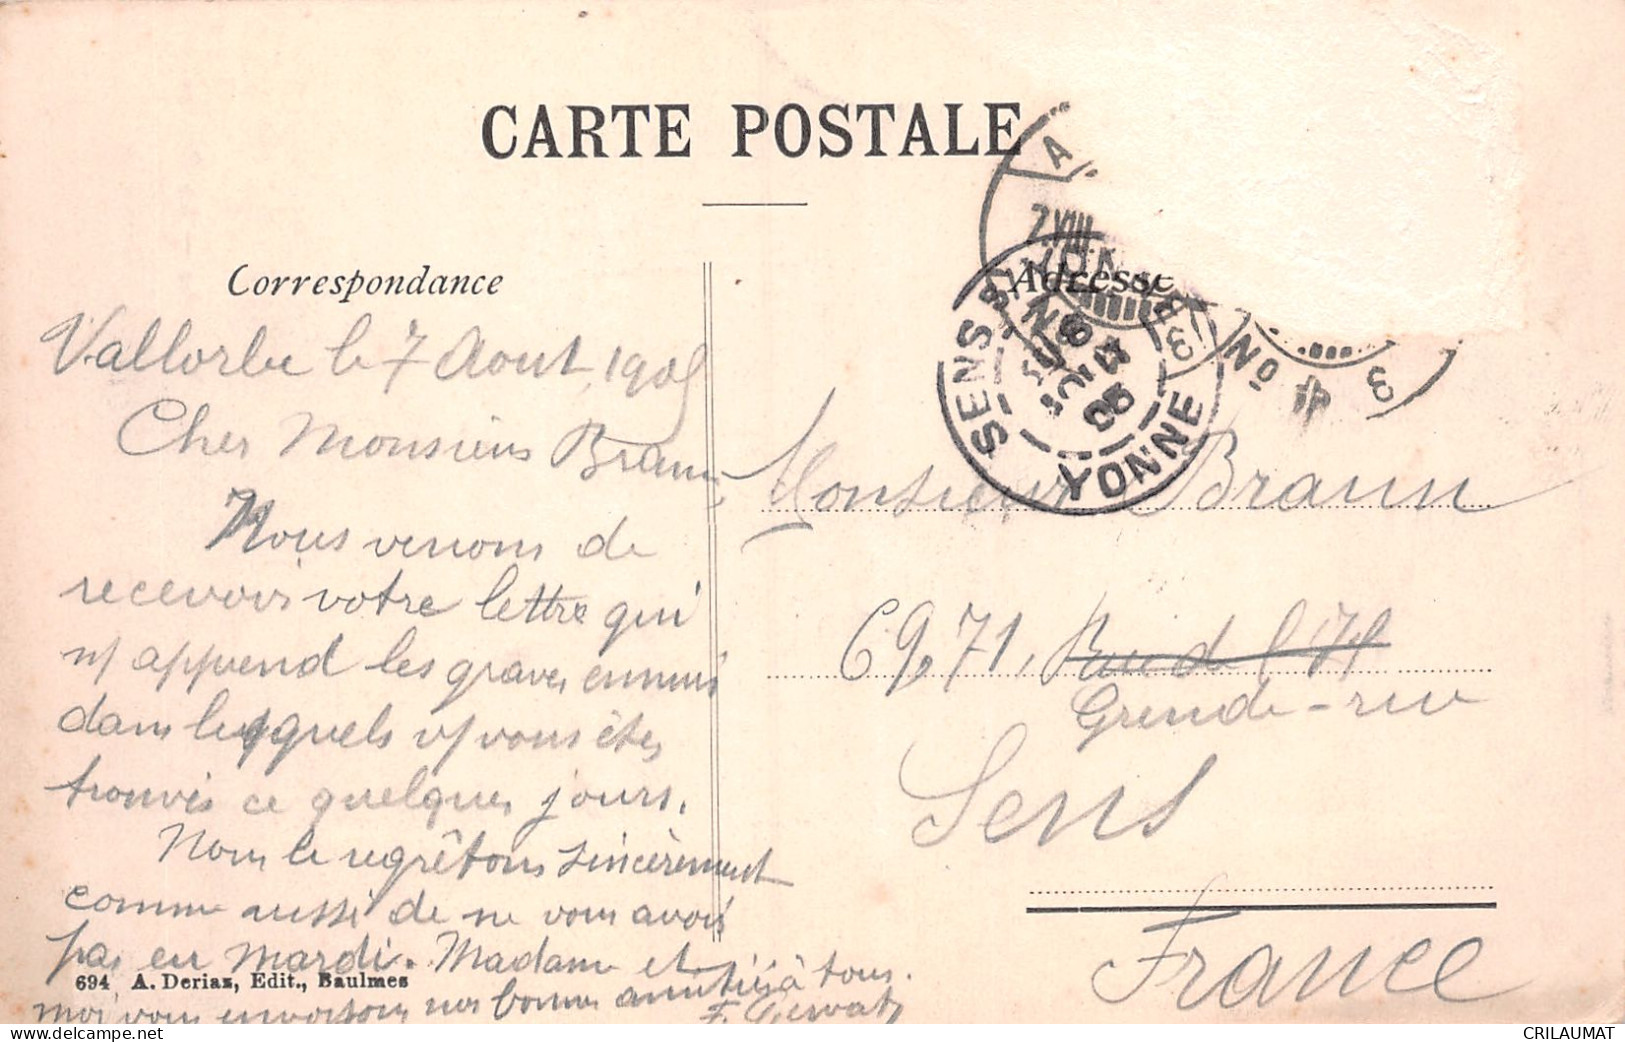 CARTE POSTALE
Correspondance
Adresse
Vallorbe le 7 Aout 1905
Cher Monsieur Braun
Nous venons de
recevoir votre lettre qui
n/ apprend les graves ennuis
dans lesquels v/ vous êtes
trouvés ce quelques jours.
Nous le regrêtons sincèrement
comme aussi de ne vous avoir
pas eu Mardi. Madame et
moi vous envoyons nos bonnes amitiés à tous.
F. Gervatz
694 A. Deriaz, Edit., Baulmes
Monsieur Braun
69,71, Rue de l'
Grende-rue
Sens
France
SENS S/ YONNE
YONNE
7.VIII
No 4
3
3
A
CRILAUMAT